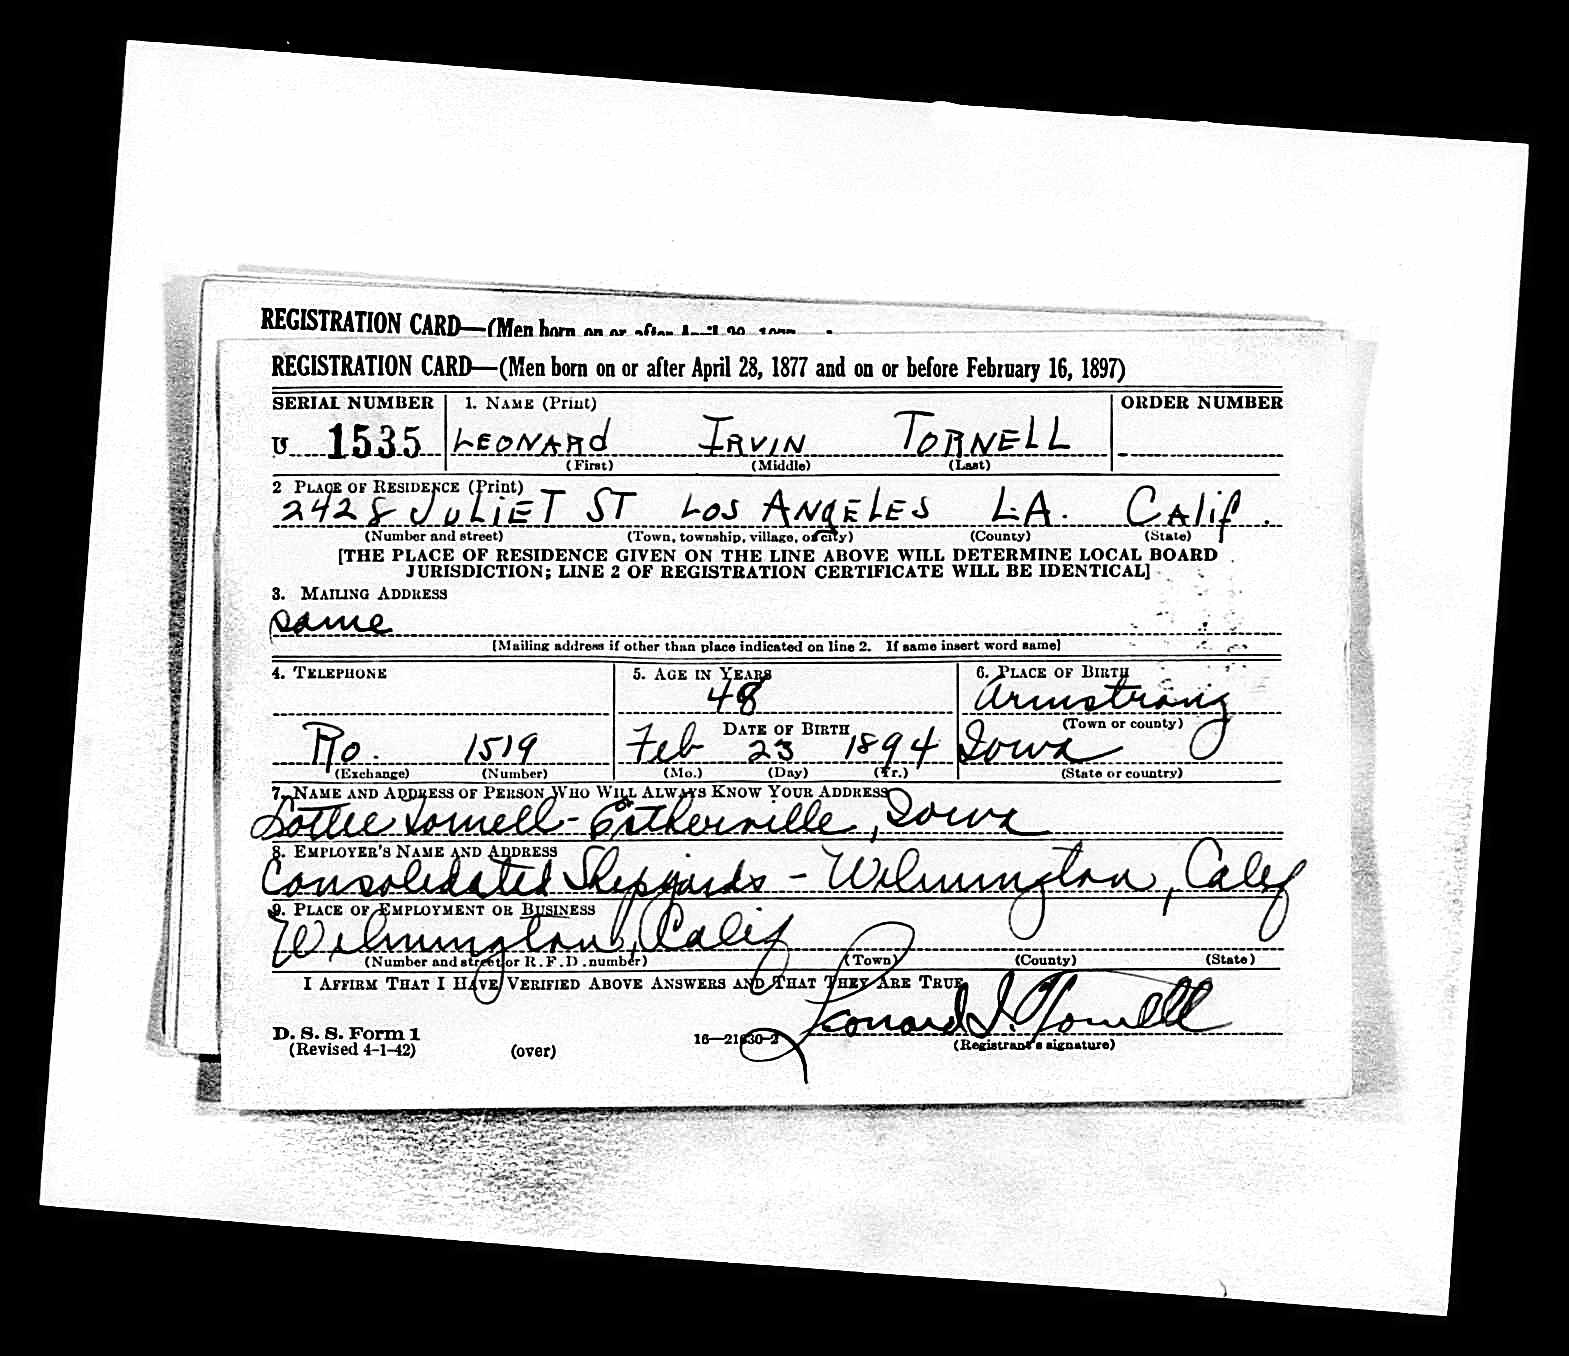 REGISTRATION CARD—(Men born on or after April
REGISTRATION CARD—(Men born on or after April 28, 1877 and on or before February 16, 1897)
SERIAL NUMBER 1. NAME (Print) ORDER NUMBER
U 1535 LEONARD IRVIN TORNELL
(First) (Middle) (Last)
2 PLACE OF RESIDENCE (Print)
2428 JULIET ST LOS ANGELES L.A. CALif.
(Number and street) (Town, township, village, or city) (County) (State)
[THE PLACE OF RESIDENCE GIVEN ON THE LINE ABOVE WILL DETERMINE LOCAL BOARD
JURISDICTION; LINE 2 OF REGISTRATION CERTIFICATE WILL BE IDENTICAL]
3. MAILING ADDRESS
same
[Mailing address if other than place indicated on line 2. If same insert word same]
4. TELEPHONE 5. AGE IN YEARS 6. PLACE OF BIRTH
48 Armstrong
DATE OF BIRTH (Town or county)
Ro. 1519 Feb 23 1894 Iowa
(Exchange) (Number) (Mo.) (Day) (Yr.) (State or country)
7. NAME AND ADDRESS OF PERSON WHO WILL ALWAYS KNOW YOUR ADDRESS
Lottie Tornell - Estherville, Iowa
8. EMPLOYER'S NAME AND ADDRESS
Consolidated Shipyards - Wilmington, Calif
9. PLACE OF EMPLOYMENT OR BUSINESS
Wilmington, Calif
(Number and street or R. F. D. number) (Town) (County) (State)
I AFFIRM THAT I HAVE VERIFIED ABOVE ANSWERS AND THAT THEY ARE TRUE
Leonard I. Tornell
D. S. S. Form 1
(Revised 4-1-42) (over) 16—21630-2 (Registrant's signature)